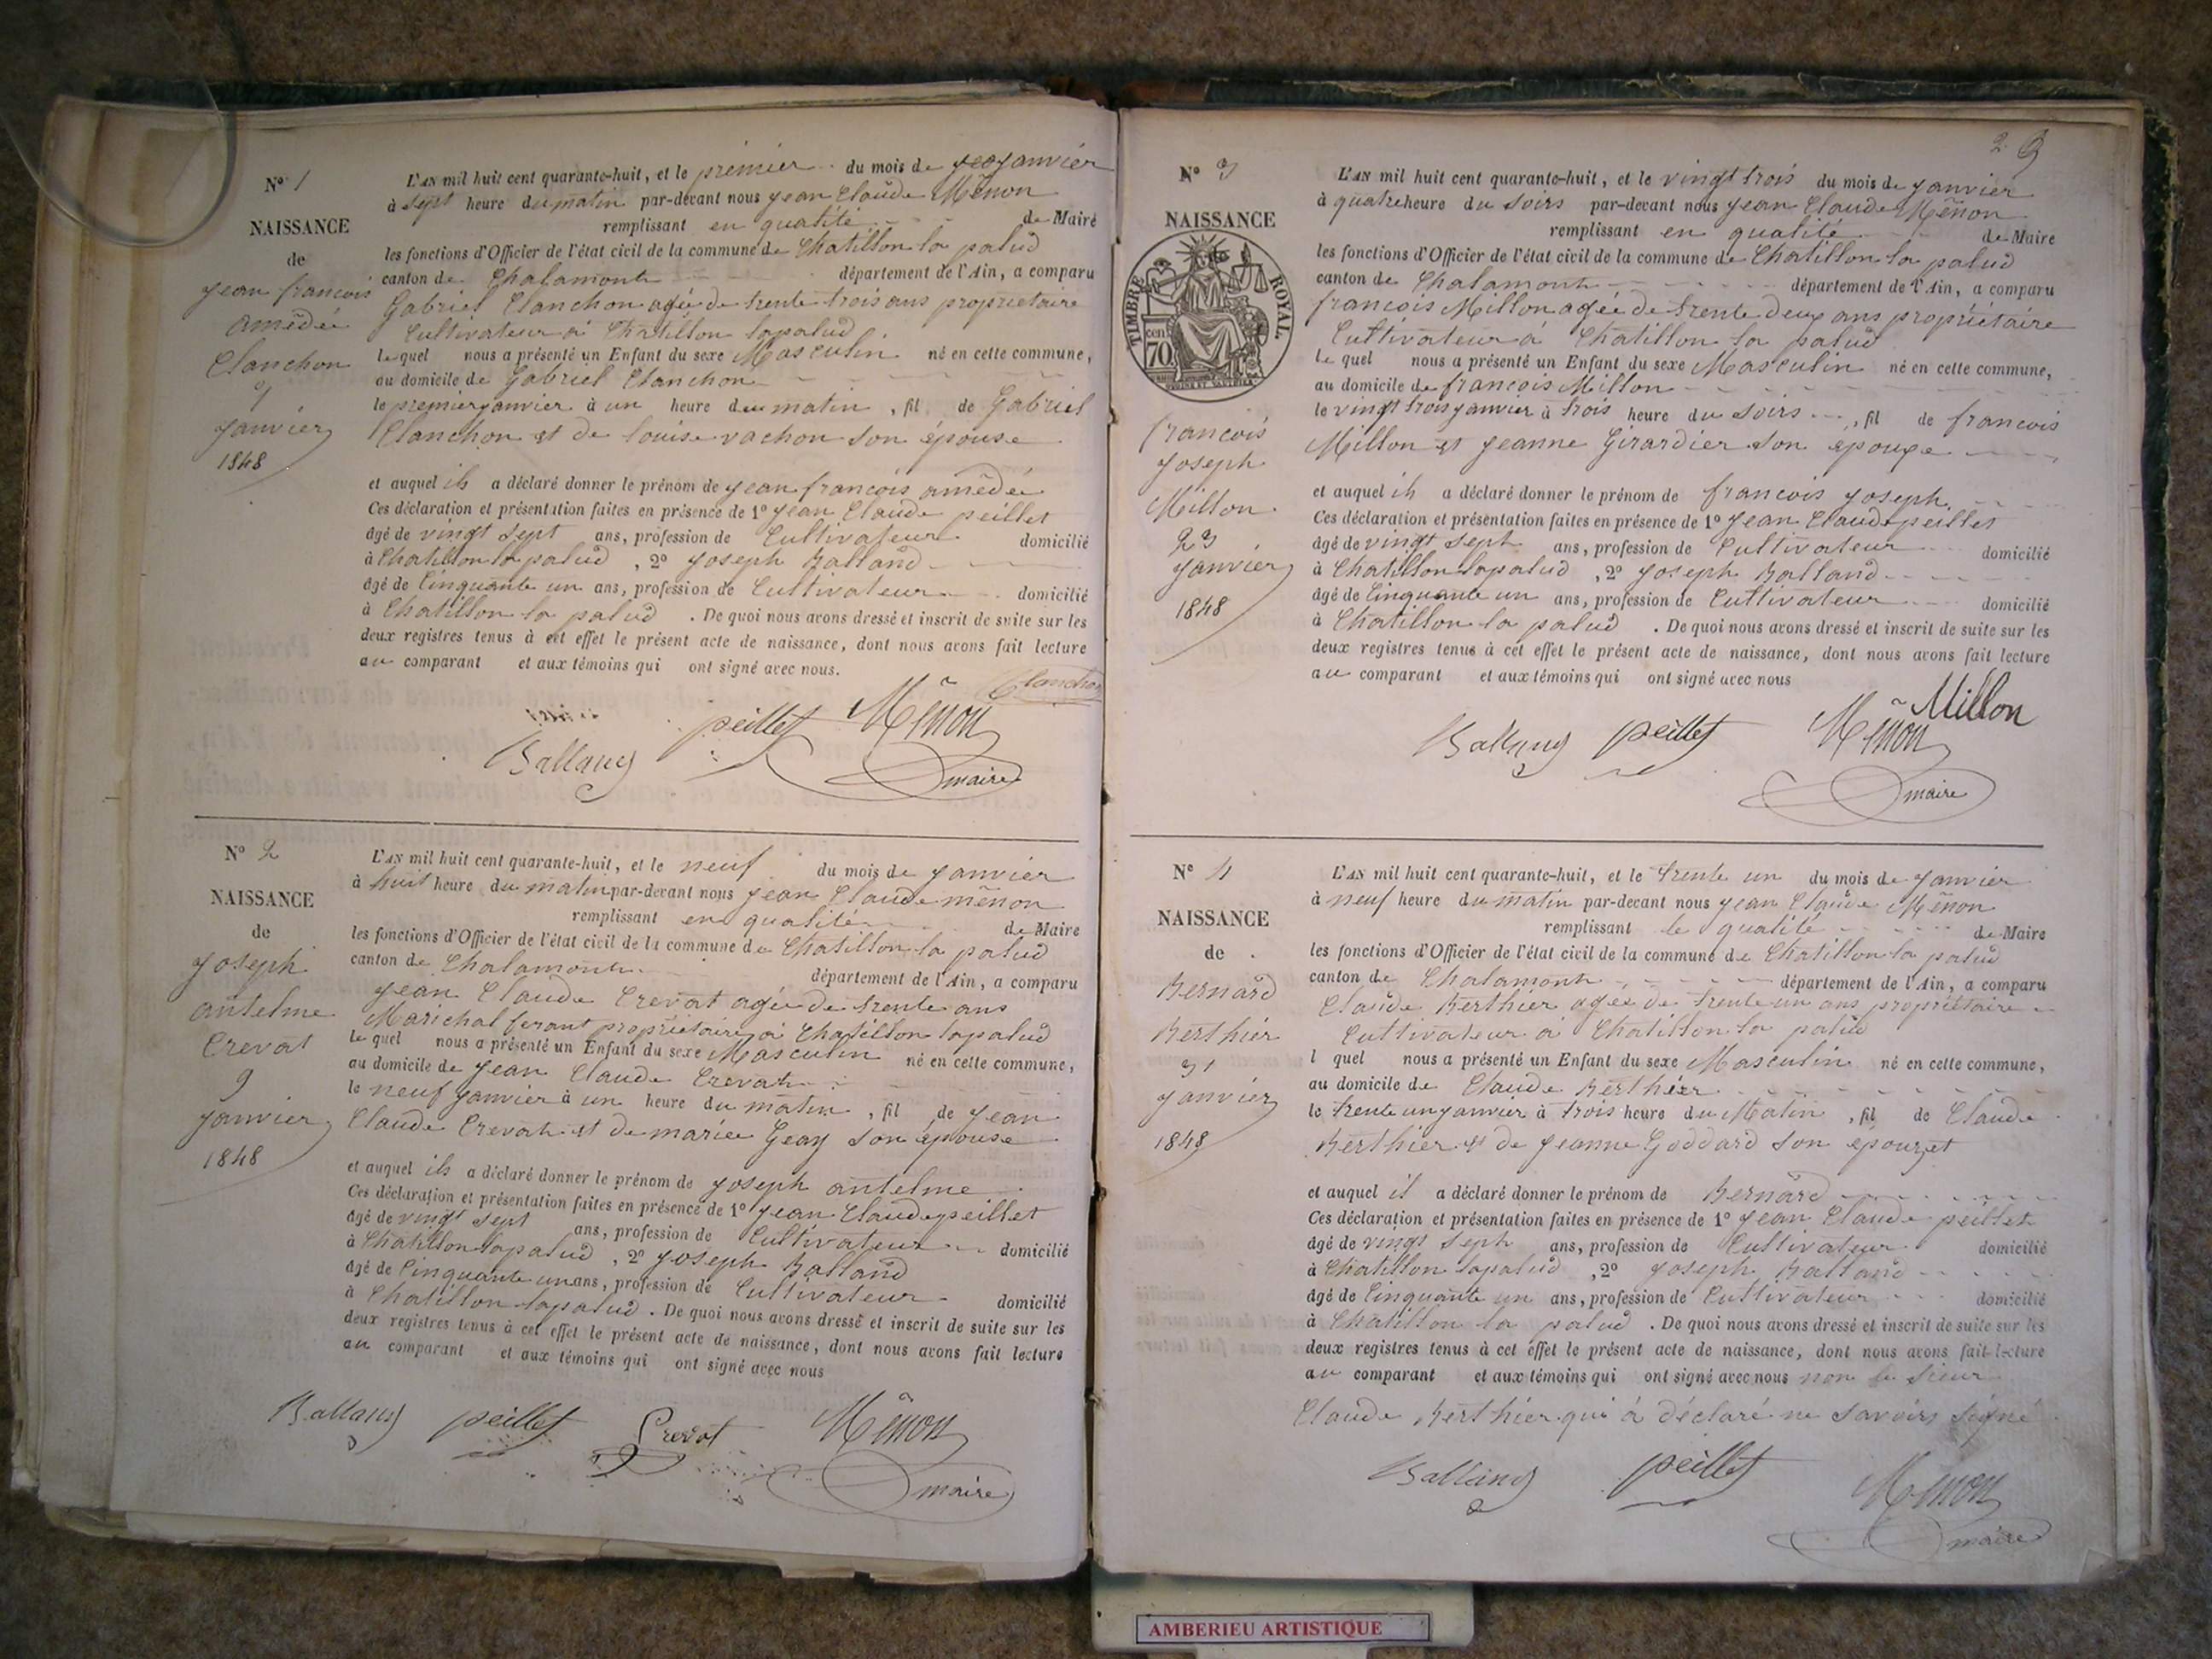 N° 1
NAISSANCE
de
jean francois
amédée
Clanchon
1
janvier
1848
L'AN mil huit cent quarante-huit, et le premier du mois de janvier
à sept heure du matin par-devant nous jean Claude Mênon
remplissant en qualité de Maire
les fonctions d'Officier de l'état civil de la commune de Chatillon la palud
canton de Chalamont département de l'Ain, a comparu
Gabriel Clanchon agée de trente trois ans propriétaire
Cultivateur à Chatillon lapalud
le quel nous a présenté un Enfant du sexe Masculin né en cette commune,
au domicile de Gabriel Clanchon
le premier janvier à un heure du matin, fil de Gabriel
Clanchon et de louise vachon son épouse
et auquel il a déclaré donner le prénom de jean francois amédée
Ces déclaration et présentation faites en présence de 1° jean Claude peillet
âgé de vingt sept ans, profession de Cultivateur domicilié
à Chatillon la palud, 2° joseph Balland
âgé de Cinquante un ans, profession de Cultivateur domicilié
à Chatillon la palud. De quoi nous avons dressé et inscrit de suite sur les
deux registres tenus à cet effet le présent acte de naissance, dont nous avons fait lecture
au comparant et aux témoins qui ont signé avec nous.
Clanchon
Balland peillet Mênon
maire
N° 2
NAISSANCE
de
joseph
antelme
Crevat
9
janvier
1848
L'AN mil huit cent quarante-huit, et le neuf du mois de janvier
à huit heure du matin par-devant nous jean Claude mênon
remplissant en qualité de Maire
les fonctions d'Officier de l'état civil de la commune de Chatillon la palud
canton de Chalamont département de l'Ain, a comparu
jean Claude Crevat agée de trente ans
Marichal ferant propriétaire à Chatillon lapalud
le quel nous a présenté un Enfant du sexe Masculin né en cette commune,
au domicile de jean Claude Crevat
le neuf janvier à un heure du matin, fil de jean
Claude Crevat et de marie Geay son épouse
et auquel il a déclaré donner le prénom de joseph antelme
Ces déclaration et présentation faites en présence de 1° jean Claude peillet
âgé de vingt sept ans, profession de Cultivateur domicilié
à Chatillon lapalud, 2° joseph Balland
âgé de Cinquante un ans, profession de Cultivateur domicilié
à Chatillon lapalud. De quoi nous avons dressé et inscrit de suite sur les
deux registres tenus à cet effet le présent acte de naissance, dont nous avons fait lecture
au comparant et aux témoins qui ont signé avec nous
Balland peillet Crevat Mênon
maire
2
N° 3
NAISSANCE
TIMBRE ROYAL
cen
70
francois
joseph
Millon
23
janvier
1848
L'AN mil huit cent quarante-huit, et le vingt trois du mois de janvier
à quatre heure du soirs par-devant nous jean Claude Mênon
remplissant en qualité de Maire
les fonctions d'Officier de l'état civil de la commune de Chatillon la palud
canton de Chalamont département de l'Ain, a comparu
francois Millon agée de trente deux ans propriétaire
Cultivateur à Chatillon la palud
le quel nous a présenté un Enfant du sexe Masculin né en cette commune,
au domicile de francois Millon
le vingt trois janvier à trois heure du soirs, fil de francois
Millon et jeanne Girardier son epouse
et auquel il a déclaré donner le prénom de francois joseph
Ces déclaration et présentation faites en présence de 1° jean Claude peillet
âgé de vingt sept ans, profession de Cultivateur domicilié
à Chatillon lapalud, 2° joseph Balland
âgé de Cinquante un ans, profession de Cultivateur domicilié
à Chatillon la palud. De quoi nous avons dressé et inscrit de suite sur les
deux registres tenus à cet effet le présent acte de naissance, dont nous avons fait lecture
au comparant et aux témoins qui ont signé avec nous
Millon
Balland peillet Mênon
maire
N° 4
NAISSANCE
de
Bernard
Berthier
31
janvier
1848
L'AN mil huit cent quarante-huit, et le trente un du mois de janvier
à neuf heure du matin par-devant nous jean Claude Mênon
remplissant le qualité de Maire
les fonctions d'Officier de l'état civil de la commune de Chatillon la palud
canton de Chalamont département de l'Ain, a comparu
Claude Berthier agée de trente un ans propriétaire
Cultivateur à Chatillon la palud
l quel nous a présenté un Enfant du sexe Masculin né en cette commune,
au domicile de Claude Berthier
le trente un janvier à trois heure du Matin, fil de Claude
Berthier et de jeanne Goddard son epouze
et auquel il a déclaré donner le prénom de Bernard
Ces déclaration et présentation faites en présence de 1° jean Claude peillet
âgé de vingt sept ans, profession de Cultivateur domicilié
à Chatillon lapalud, 2° joseph Balland
âgé de Cinquante un ans, profession de Cultivateur domicilié
à Chatillon la palud. De quoi nous avons dressé et inscrit de suite sur les
deux registres tenus à cet effet le présent acte de naissance, dont nous avons fait lecture
au comparant et aux témoins qui ont signé avec nous non le sieur
Claude Berthier qui à déclaré ne savoirs signé
Balland peillet Mênon
maire
AMBERIEU ARTISTIQUE